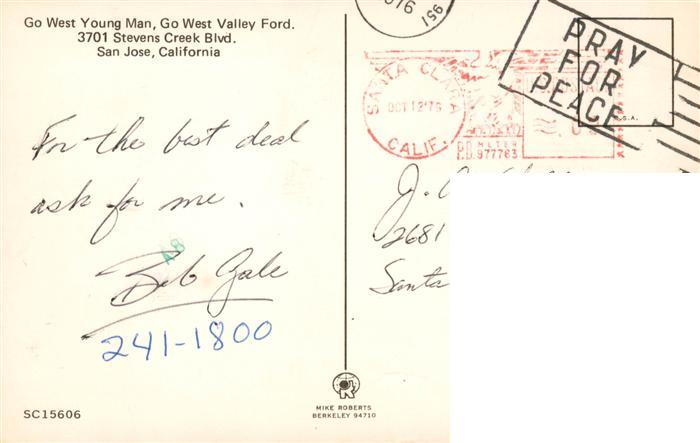 Go West Young Man, Go West Valley Ford.
3701 Stevens Creek Blvd.
San Jose, California
For the best deal
ask for me.
A8
Bob Gale
241-1800
SC15606
MIKE ROBERTS
BERKELEY 94710
1976
PRAY
FOR
PEACE
U.S.A.
SANTA CLARA
OCT 12'76
CALIF.
P.B. METER
977763
J.
2681
Santa